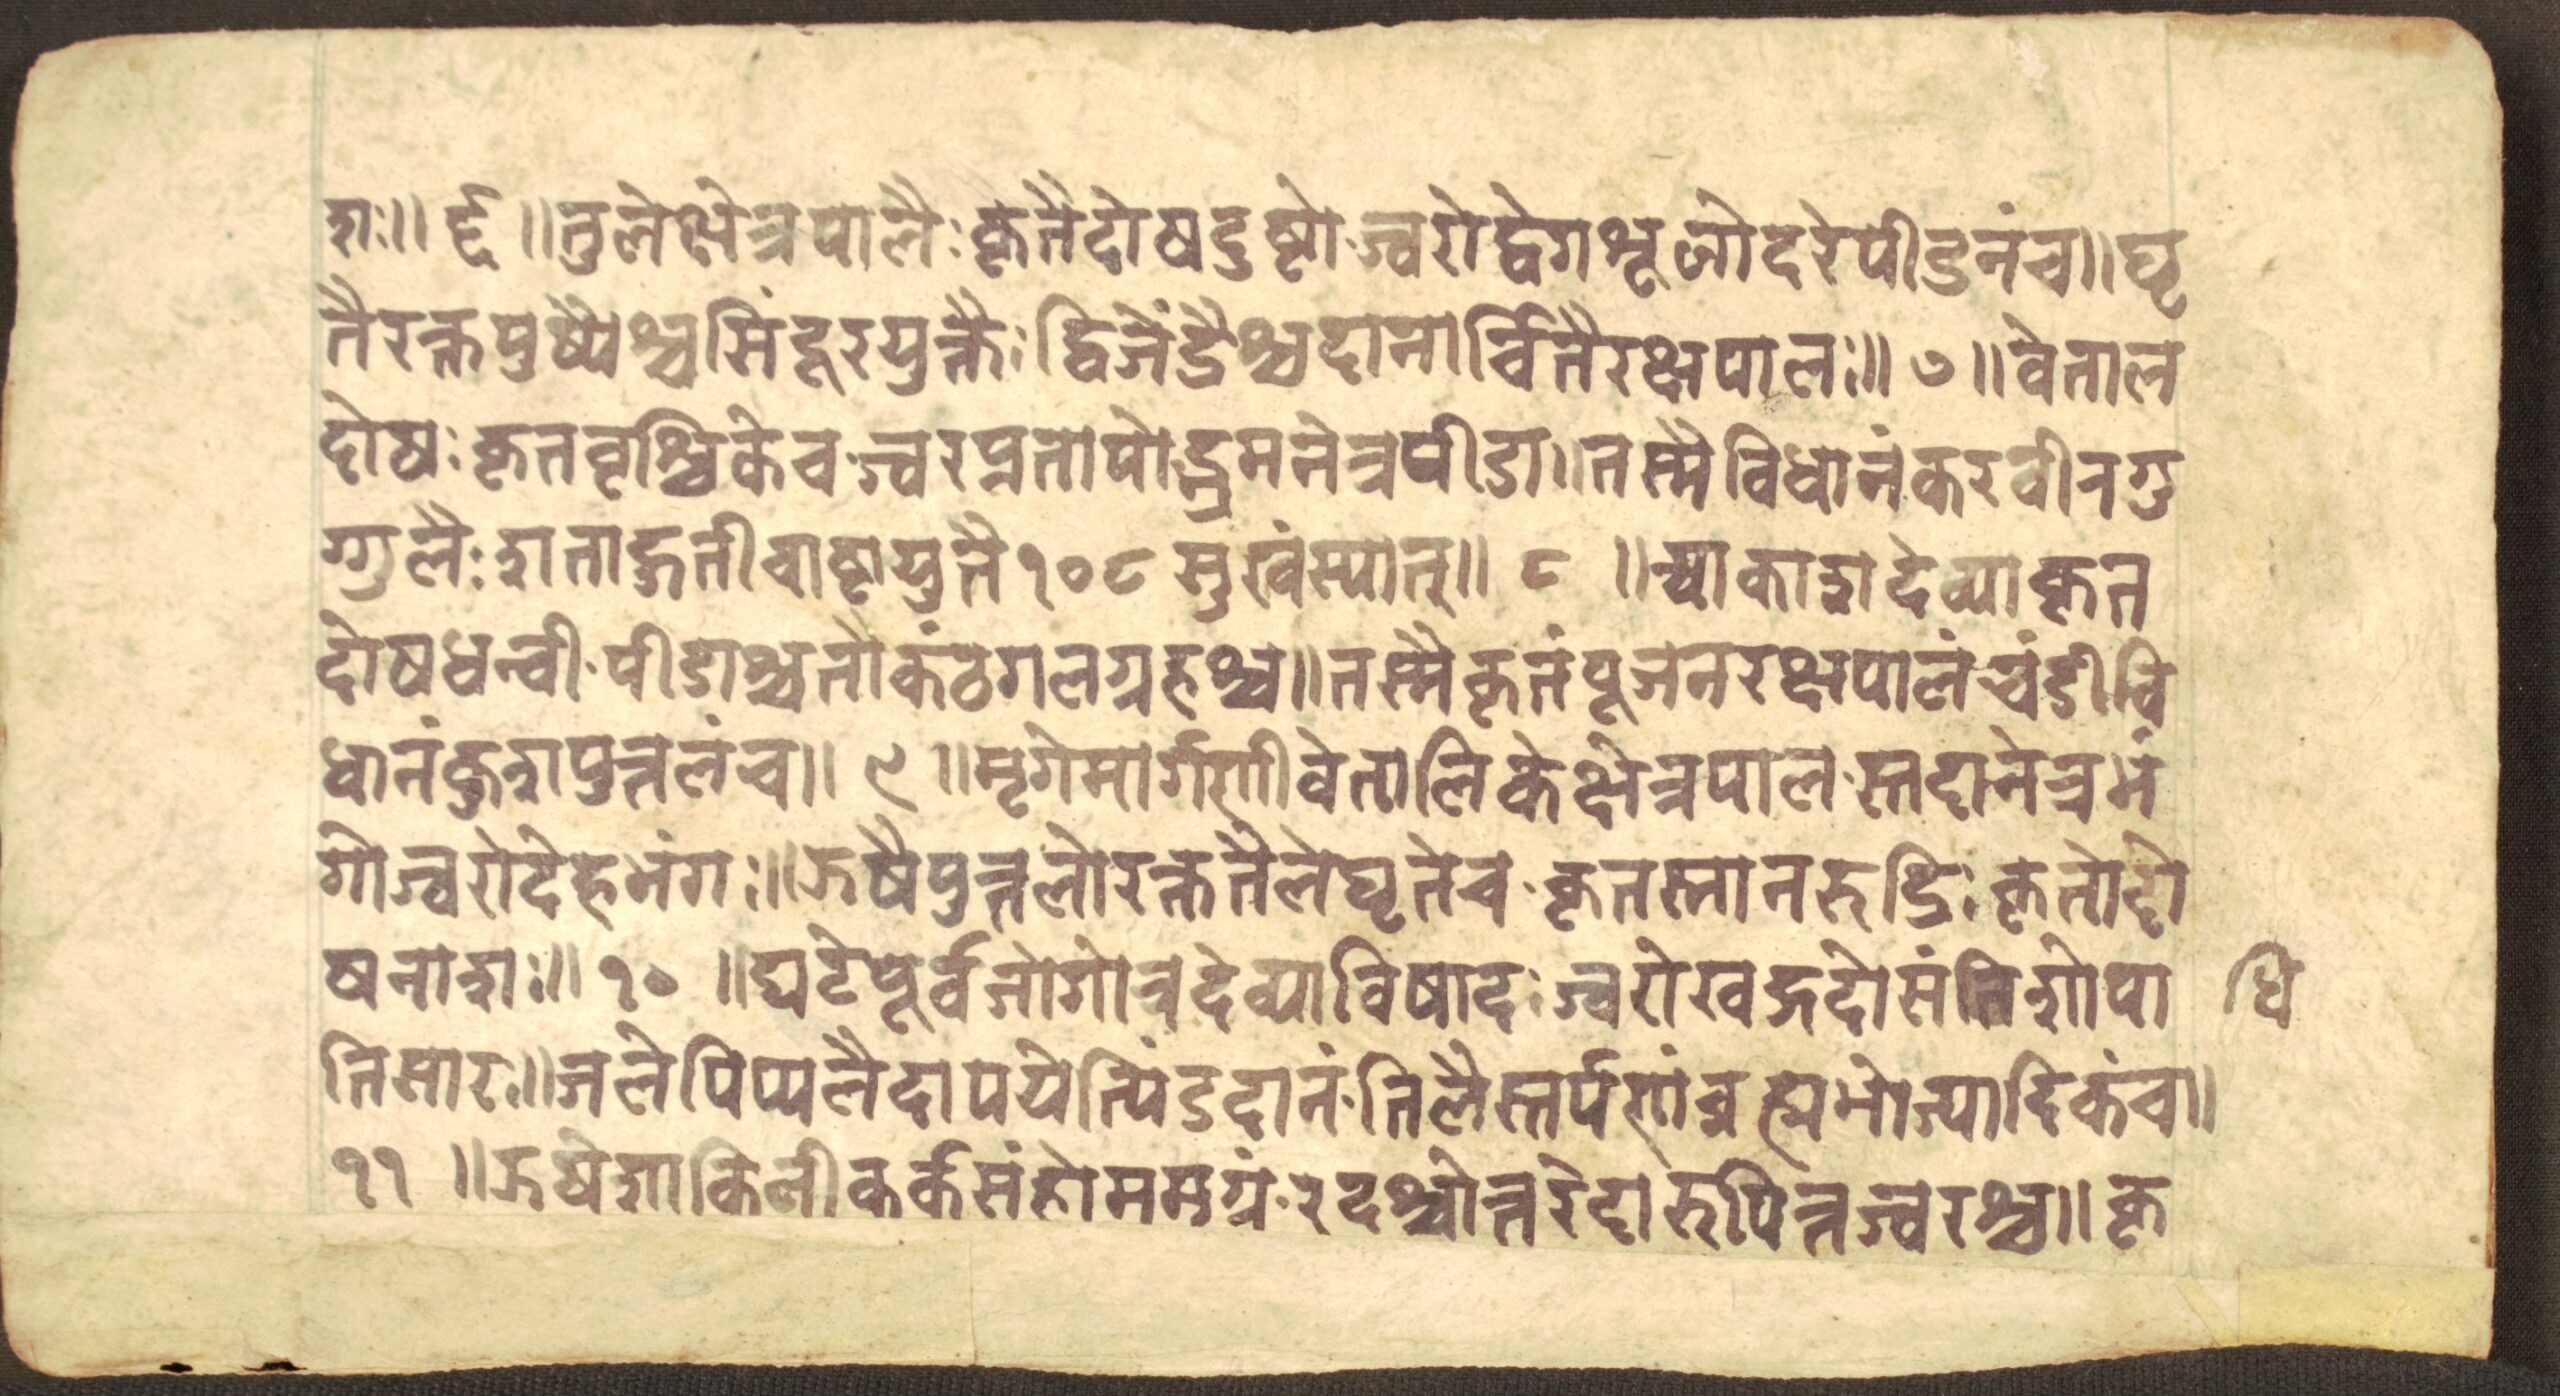 शः॥ ६ ॥तुलेक्षेत्रपालैः कृतैदोषदुष्टो ज्वरोद्वेगभ्रूणोदरेपीडनंच॥घृ
तैरक्तपुष्पैश्चसिंदूरयुक्तैः द्विजैंद्रैश्चदानार्चितैरक्षपालः॥ ७ ॥वेताल
दोषः कृतवृश्चिकेच ज्वरप्रतापोद्भ्रमनेत्रपीडा॥तस्मैविधानंकरवीनगु
ग्गुलैः शताहुतीचाष्टायुतै १०८ सुखंस्यात्॥ ८ ॥आकाशदेव्याकृत
दोषधन्वी पीडाश्चतोकंठगलग्रहश्च॥तस्मैकृतंपूजनरक्षपालंचंडीवि
धानंकुशपुत्तलंच॥ ९ ॥मृगेमार्गणीवेतालिकेक्षेत्रपाल स्तदानेत्रभं
गोज्वरोदेहभंगः॥ऊषैपुत्तलोरक्ततैलेघृतेच कृतस्नानरुद्रिः कृतोदो
षनाशः॥ १० ॥घटेपूर्वजोगोत्रदेव्याविषादः ज्वरोखङ्गदोसंतिशोपा धि
तिसारः॥जलेपिप्पलैदापयेत्पिंडदानं तिलैस्तर्पणंब्रह्मभोज्यादिकंच॥
११ ॥ऊषेशाकिनीकर्कसंहोममग्रं रदश्चोत्तरेदारुपित्तज्वरश्च॥कृ